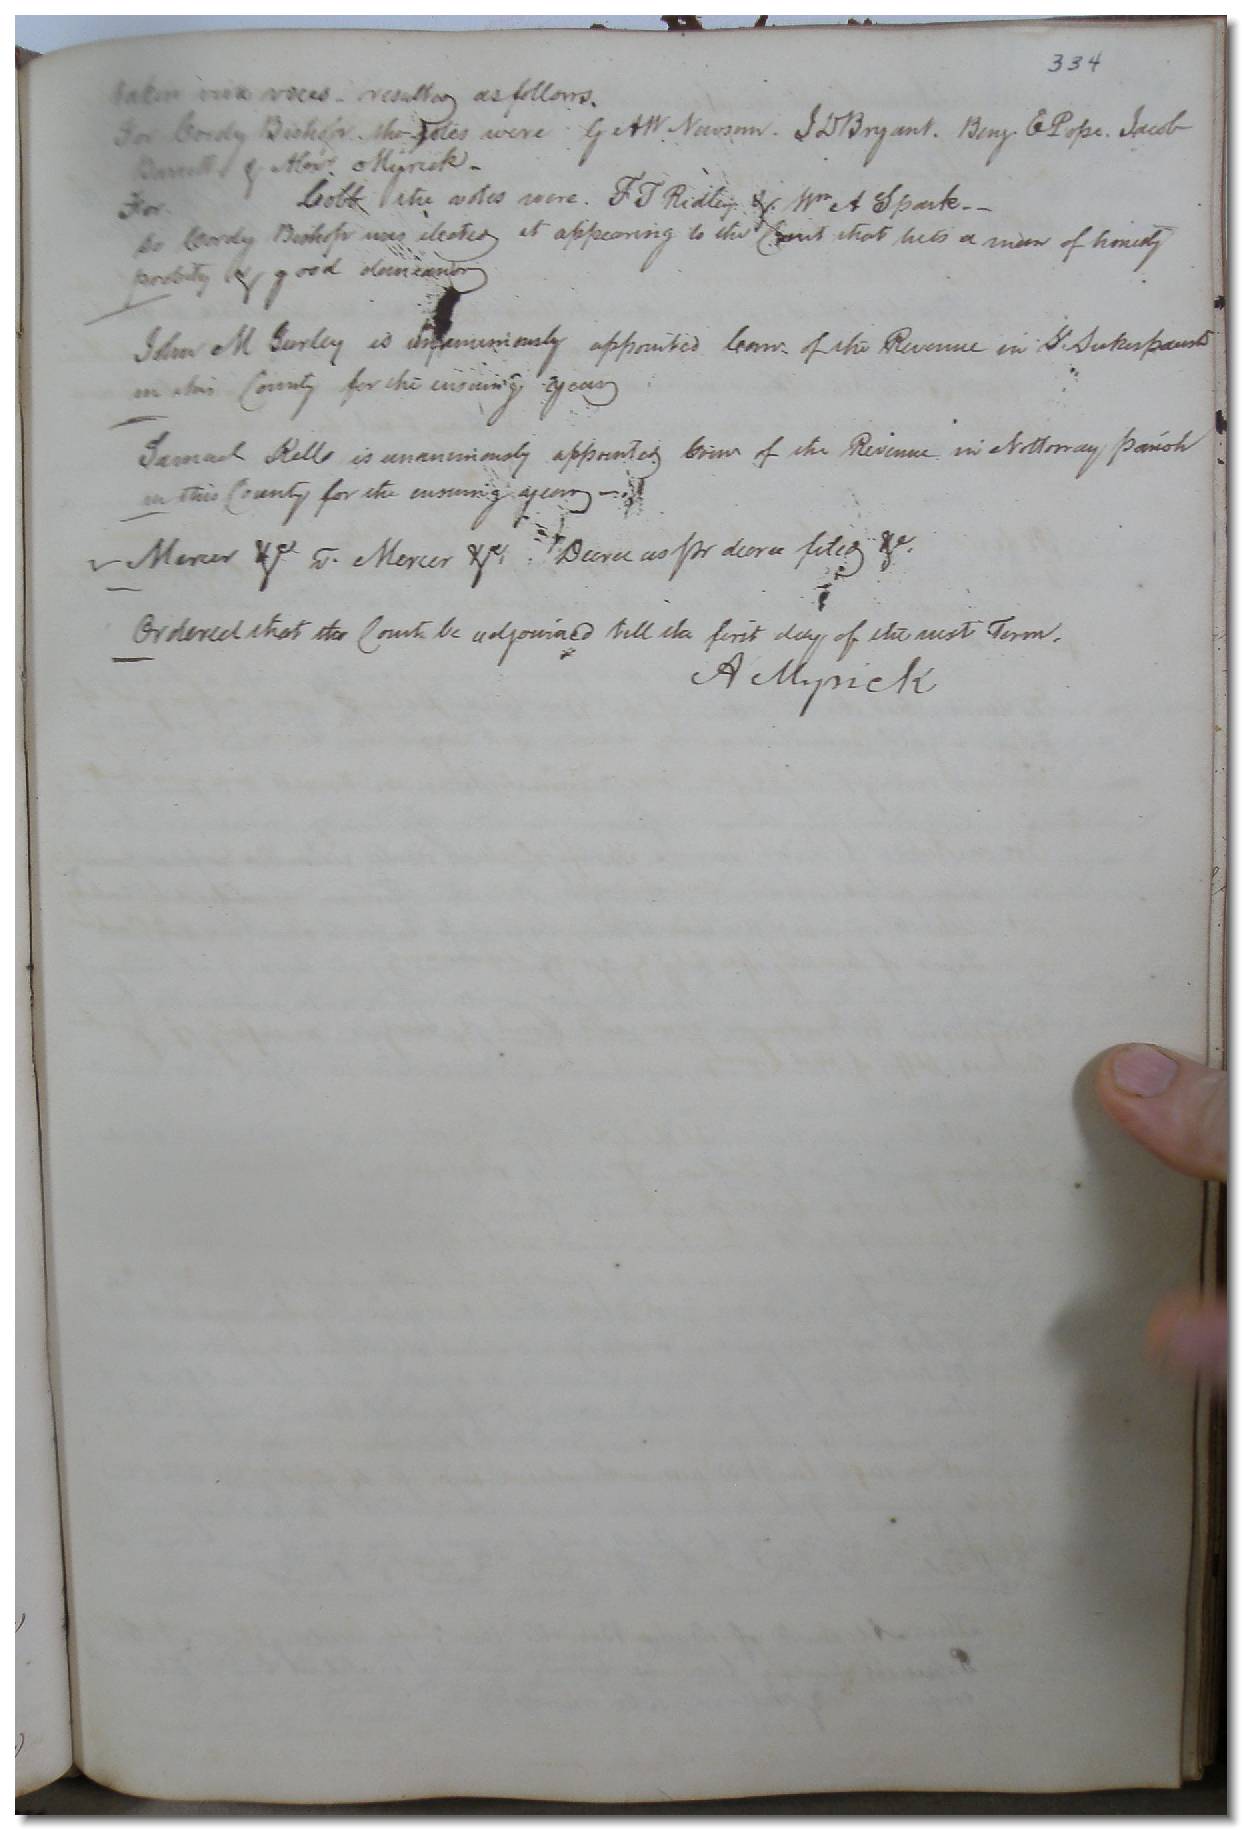 334
taken viva voces - resulted as follows.
For Cordy Bishop the votes were G AW Newsom. J D Bryant. Benj. E Pope. Jacob
Barrett & Alexr. Myrick -
For Cobb the votes were. F T Ridley & Wm A Spark. -
So Cordy Bishop was elected it appearing to the Court that he is a man of honesty
probity & good demeanor
John M Gurley is unanimously appointed Com. of the Revenue in St. Lukes parish
in this County for the ensuing year
Samuel Kello is unanimously appointed Com of the Revenue in Nottoway parish
in this County for the ensuing year -
Mercer &c vs. Mercer &c. Decree as pr decree filed &c.
Ordered that the Court be adjourned till the first day of the next Term.
A Myrick